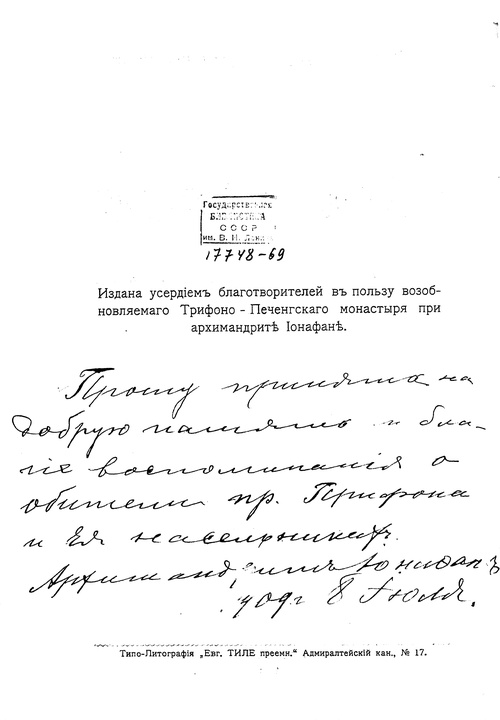 Государственная
БИБЛИОТЕКА
СССР
им. В. И. Ленина
17748-69
Издана усердіемъ благотворителей въ пользу возоб-
новляемаго Трифоно - Печенгскаго монастыря при
архимандритѣ Іонафанѣ.
Прошу принять на
добрую память и бла-
гіе воспоминанія о
обители пр. Трифона
и Ея насельникахъ.
Архимандритъ Іонафанъ
8 Іюля.
Типо-Литографія „Евг. ТИЛЕ преемн.“ Адмиралтейскій кан., № 17.